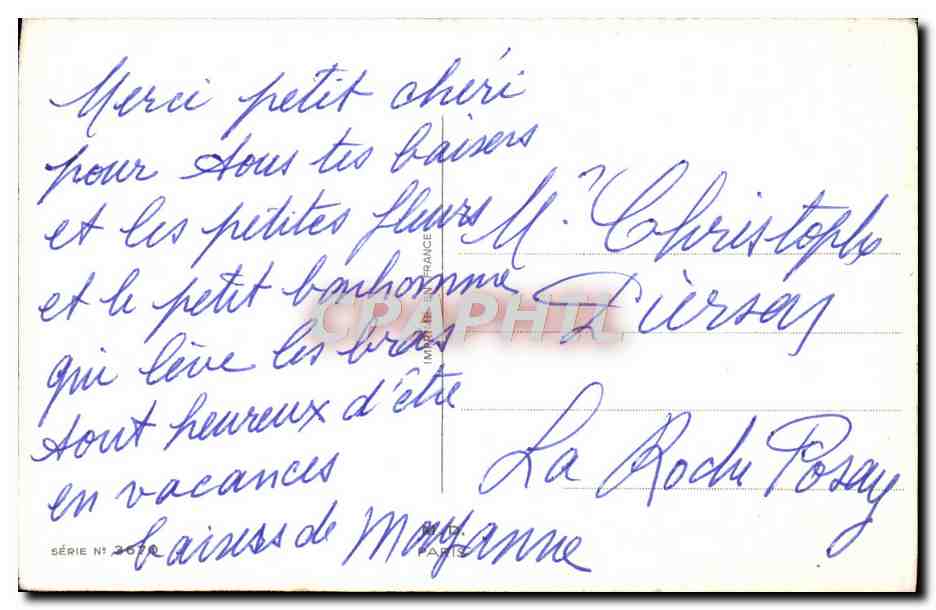 Merci petit chéri
pour tous tes baisers
et les petites fleurs
et le petit bonhomme
qui lève les bras
tout heureux d'être
en vacances
baisers de Moyanne
Mr Christophe
Diersay
La Roche Posay
IMPRIMÉ EN FRANCE
CPARAPHIL
SÉRIE N°
M.D.
PARIS